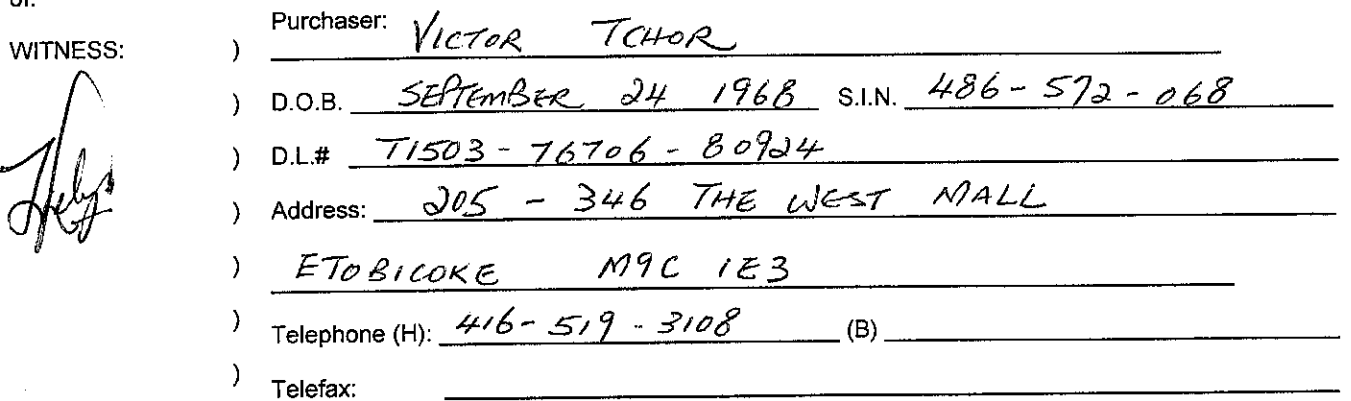 Purchaser: VICTOR TCHOR
WITNESS: )
) D.O.B. SEPTEMBER 24 1968 S.I.N. 486-572-068
) D.L.# T1503-76706-80924
) Address: 205 - 346 THE WEST MALL
) ETOBICOKE M9C 1E3
) Telephone (H): 416-519-3108 (B)
) Telefax: